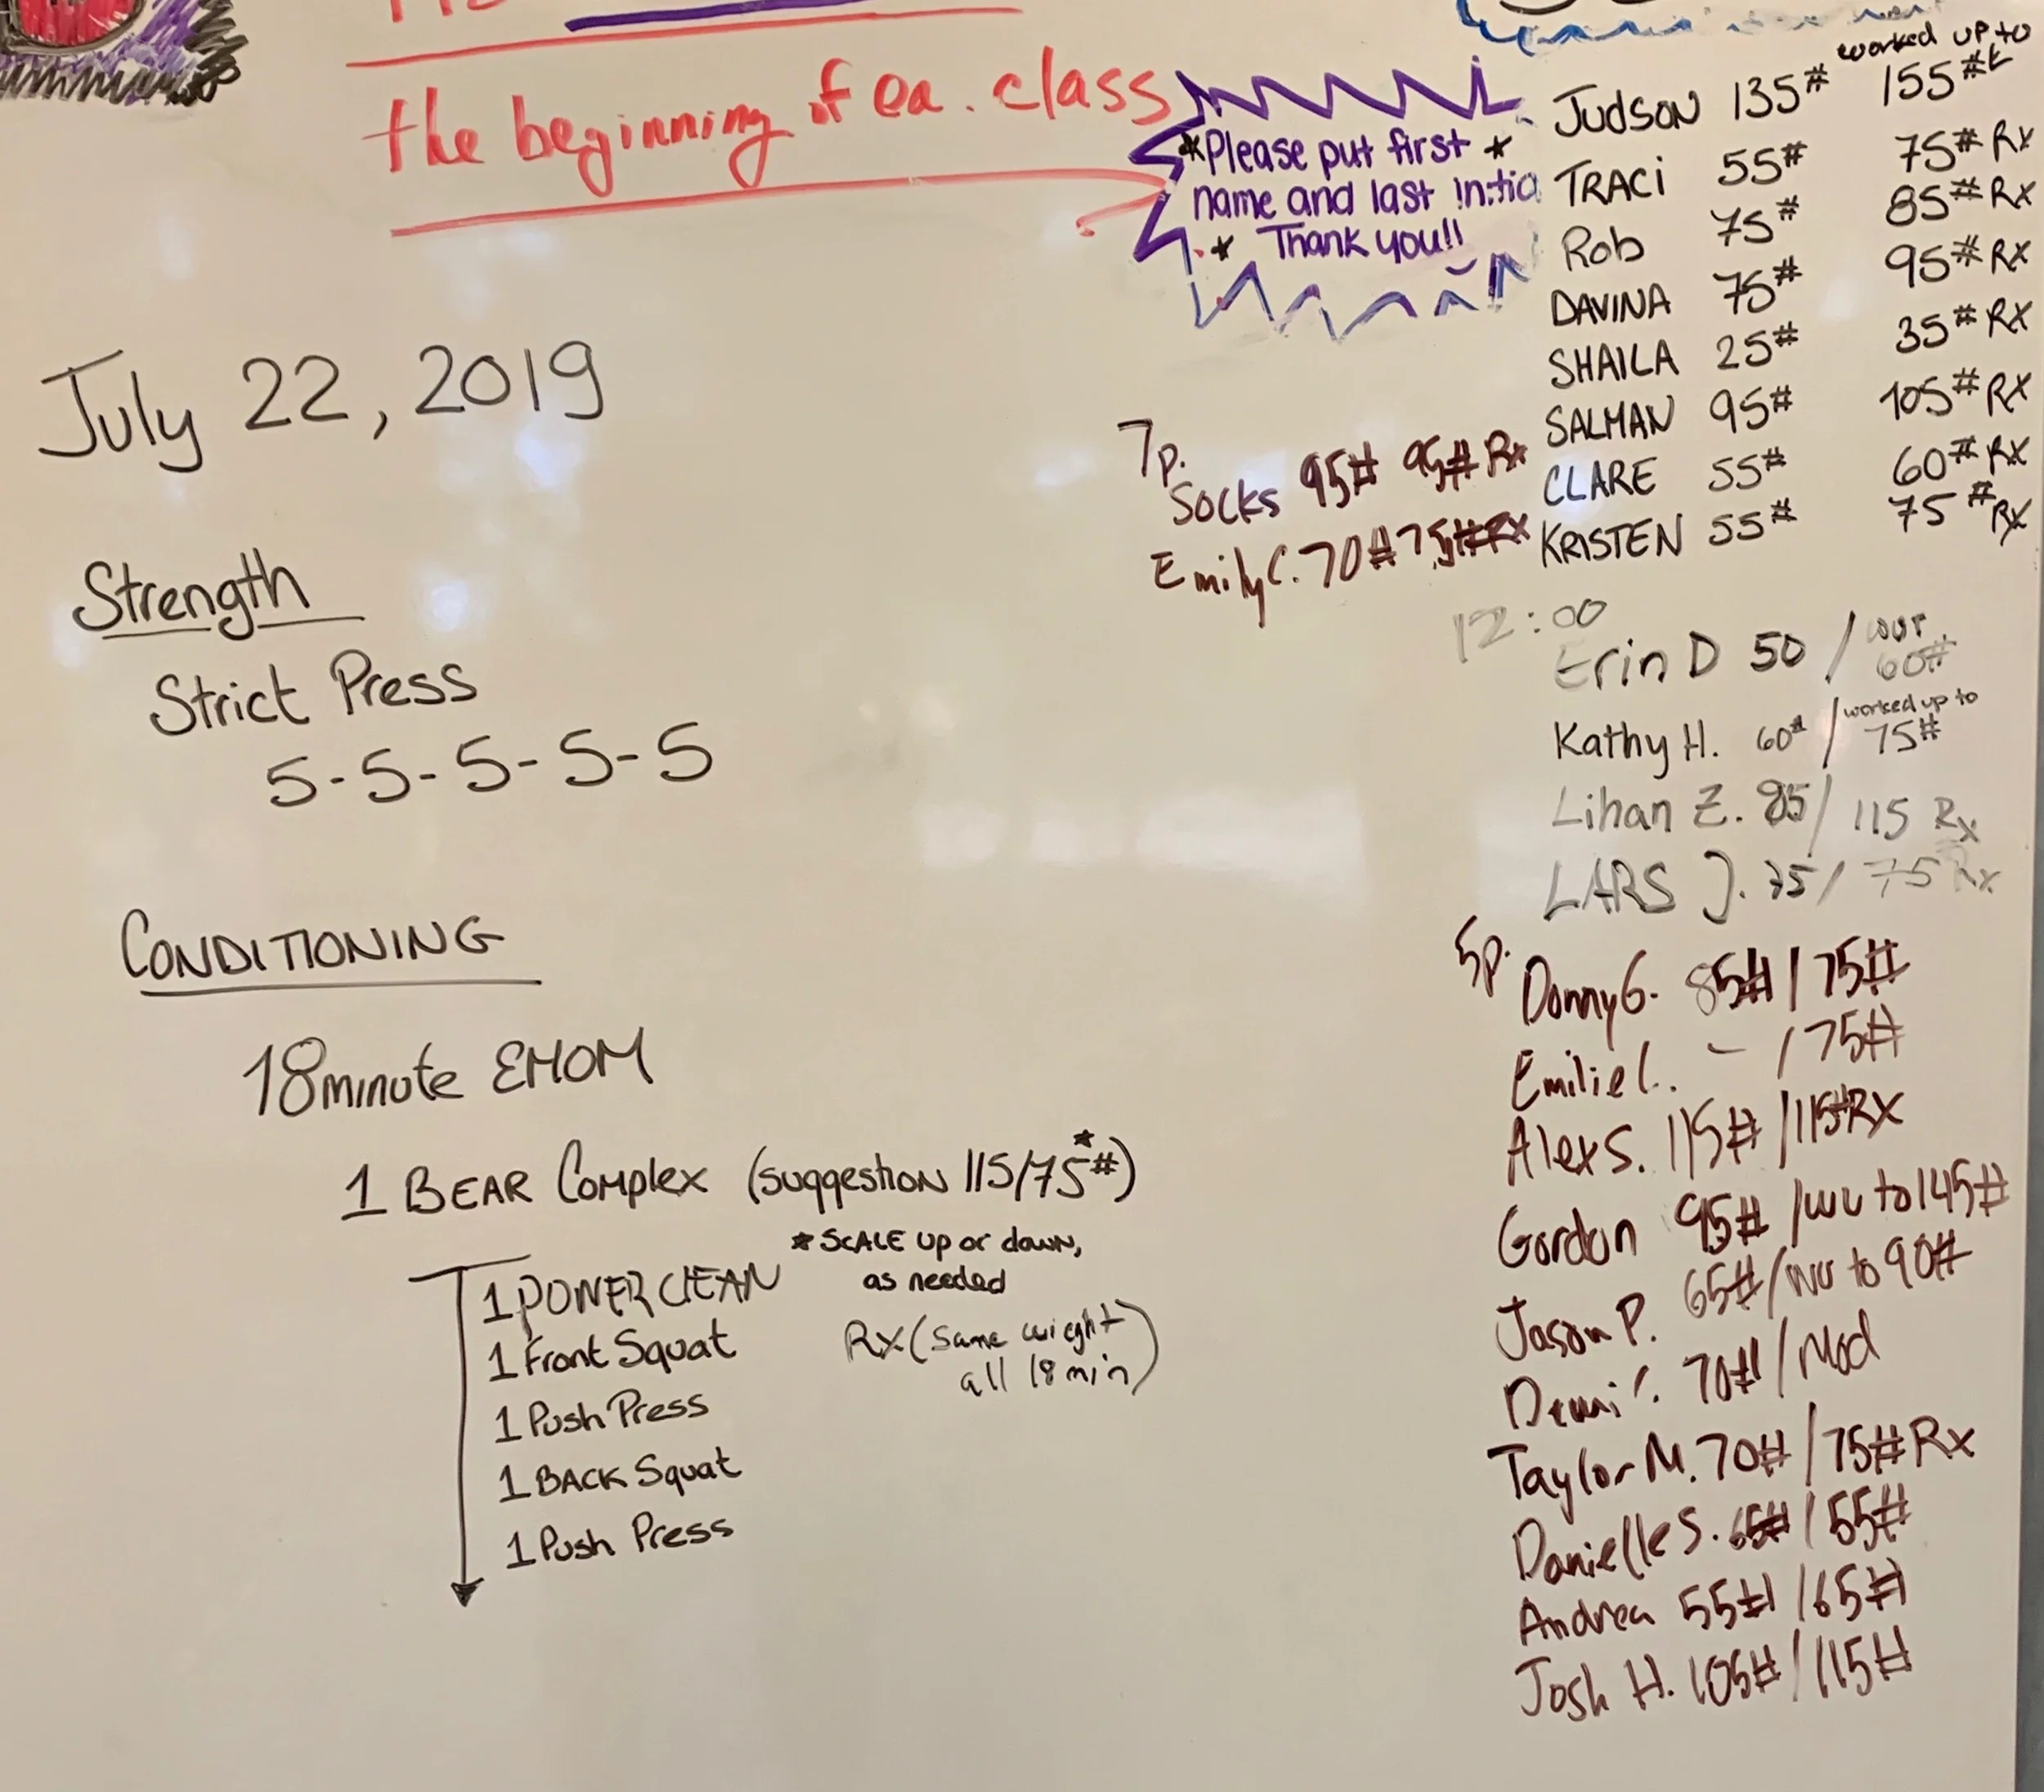 the beginning of ea. class
*Please put first *
name and last initia
* Thank you!!
July 22, 2019
Strength
Strict Press
5-5-5-5-5
CONDITIONING
18 minute EMOM
1 BEAR Complex (suggestion 115/75#*)
* SCALE up or down,
as needed
Rx (same wieght
all 18 min)
1 POWER CLEAN
1 Front Squat
1 Push Press
1 BACK Squat
1 Push Press
worked up to
Judson 135# 155#
TRACi 55# 75# Rx
Rob 75# 85# Rx
DAVINA 75# 95# Rx
SHAILA 25# 35# Rx
SALMAN 95# 105# Rx
CLARE 55# 60# Rx
KRISTEN 55# 75# Rx
7p.
Socks 95# 95# Rx
Emily C. 70# 75# Rx
12:00
Erin D 50 / WUT 60#
Kathy H. 60# / worked up to 75#
Lihan Z. 85 / 115 Rx
LARS J. / 75 Rx
5p.
Donny G. 85# / 75#
Emilie C. - / 75#
Alex S. 115# / 115# Rx
Gordon 95# / wu to 145#
Jason P. 65# / wu to 90#
Demi C. 70# / Mod
Taylor M. 70# / 75# Rx
Danielle S. 65# / 55#
Andrea 55# / 65#
Josh H. 105# / 115#